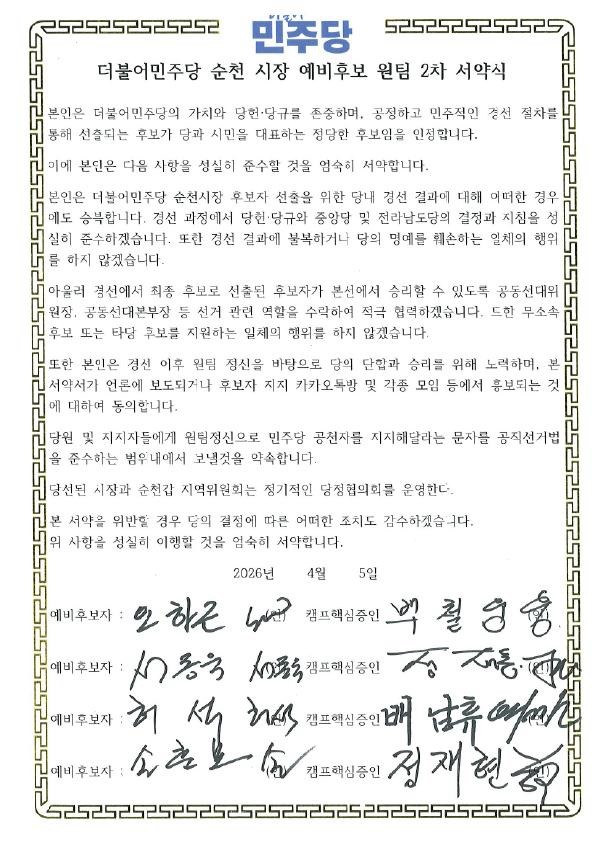 더불어
민주당
더불어민주당 순천 시장 예비후보 원팀 2차 서약식
본인은 더불어민주당의 가치와 당헌·당규를 존중하며, 공정하고 민주적인 경선 절차를
통해 선출되는 후보가 당과 시민을 대표하는 정당한 후보임을 인정합니다.
이에 본인은 다음 사항을 성실히 준수할 것을 엄숙히 서약합니다.
본인은 더불어민주당 순천시장 후보자 선출을 위한 당내 경선 결과에 대해 어떠한 경우
에도 승복합니다. 경선 과정에서 당헌·당규와 중앙당 및 전라남도당의 결정과 지침을 성
실히 준수하겠습니다. 또한 경선 결과에 불복하거나 당의 명예를 훼손하는 일체의 행위
를 하지 않겠습니다.
아울러 경선에서 최종 후보로 선출된 후보자가 본선에서 승리할 수 있도록 공동선대위
원장, 공동선대본부장 등 선거 관련 역할을 수락하여 적극 협력하겠습니다. 드한 무소속
후보 또는 타당 후보를 지원하는 일체의 행위를 하지 않겠습니다.
또한 본인은 경선 이후 원팀 정신을 바탕으로 당의 단합과 승리를 위해 노력하며, 본
서약서가 언론에 보도되거나 후보자 지지 카카오톡방 및 각종 모임 등에서 홍보되는 것
에 대하여 동의합니다.
당원 및 지지자들에게 원팀정신으로 민주당 공천자를 지지해달라는 문자를 공직선거법
을 준수하는 범위내에서 보낼것을 약속합니다.
당선된 시장과 순천갑 지역위원회는 정기적인 당정협의회를 운영한다.
본 서약을 위반할 경우 당의 결정에 따른 어떠한 조치도 감수하겠습니다.
위 사항을 성실히 이행할 것을 엄숙히 서약합니다.
2026년 4월 5일
예비후보자 : 오하근 (인) 캠프핵심증인 백철웅 (인)
예비후보자 : 서동욱 캠프핵심증인 (인)
예비후보자 : 허석 캠프핵심증인 배남휴
예비후보자 : 손훈모 손 캠프핵심증인 정재현 (인)